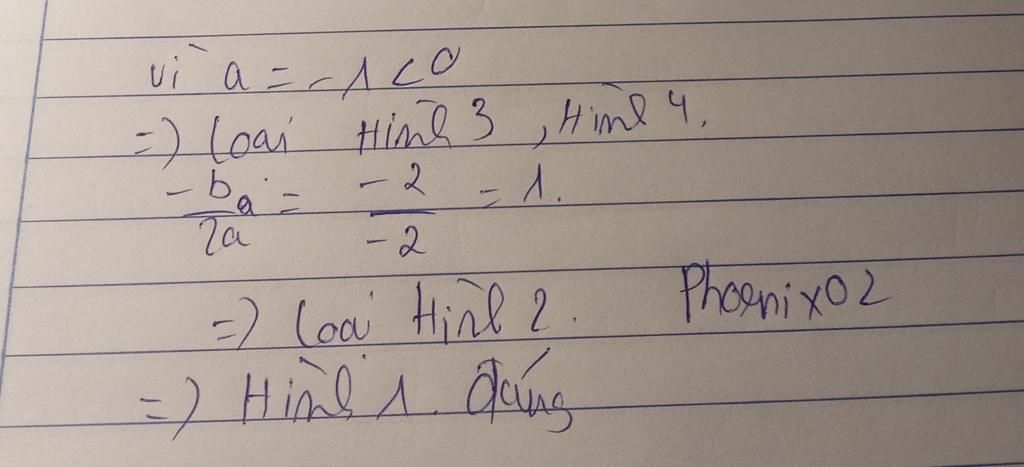 vì a = -1 < 0
=) Loại Hình 3, Hình 4.
-b/2a = -2/-2 = 1.
=) Loại Hình 2. Phoenix02
=) Hình 1. đúng